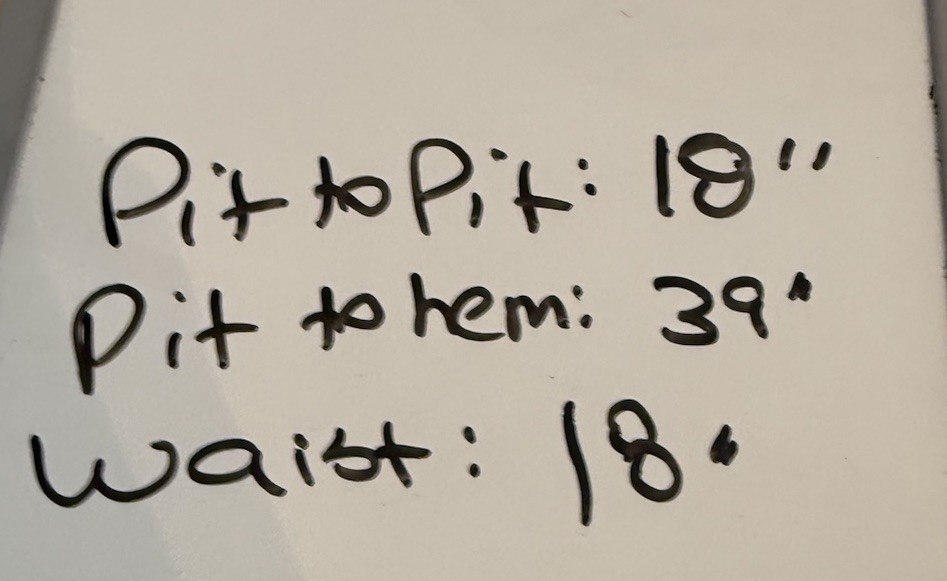 Pit to Pit: 18"
Pit to hem: 39"
Waist: 18"